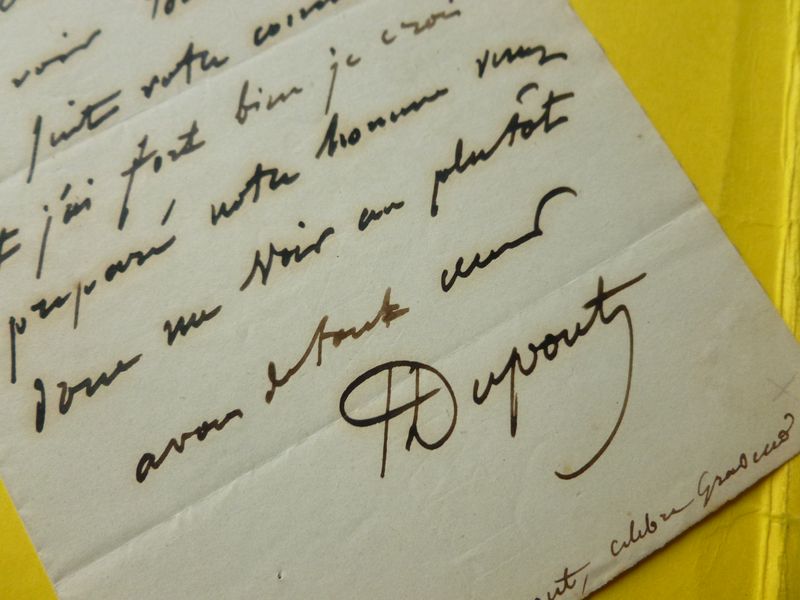 voir
suite votre comm
t j'ai fort bien je crois
préparé votre homme venez
donc me voir au plutôt
a vous de tout cœur
Dupont
ont, célèbre Graveur